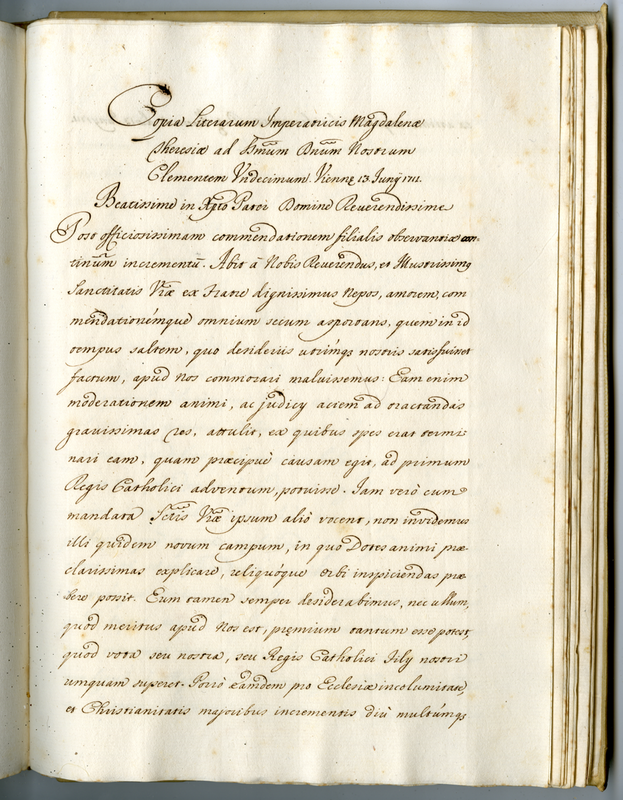 Copia Literarum Imperatricis Magdalenæ
Theresiæ ad Smum Dnum Nostrum
Clementem Undecimum. Viennę 13. Junij 1711.
Beatissime in Xpto Patri Domine Reverendissime
Post officiosissimam commendationem filialis observantiæ con-
tinuum incrementū. Abit à Nobis Reverendus, et Illustrissimꝯ
Sanctitatis Vræ ex Fratre dignissimus Nepos, amorem, com
mendationémque omnium secum asportans, quem in id
tempus saltem, quo desiderijs utrimqs nostris satisfuisset
factum, apud Nos commorari maluissemus: Eam enim
moderationem animi, ac judicij aciem ad tractandas
gravissimas res, attulit, ex quibus spes erat termi
nari eam, quam præcipuè causam egit, ad primum
Regis Catholici adventum, potuisse. Iam verò cum
mandata Sctis Vræ ipsum aliò vocent, non invidemus
illi quidem novum campum, in quo Dotes animi præ
clarissimas explicare, reliquóque orbi inspiciendas præ
bere possit. Eum tamen semper desiderabimus, nec ullum,
quod meritus apud Nos est, pręmium tantum esse potest,
quod vota seu nostra, seu Regis Catholici Filij nostri
umquam superet. Porrò eamdem pro Ecclesiæ incolumitate,
et Christianitatis majoribus incrementis diù multúmqs